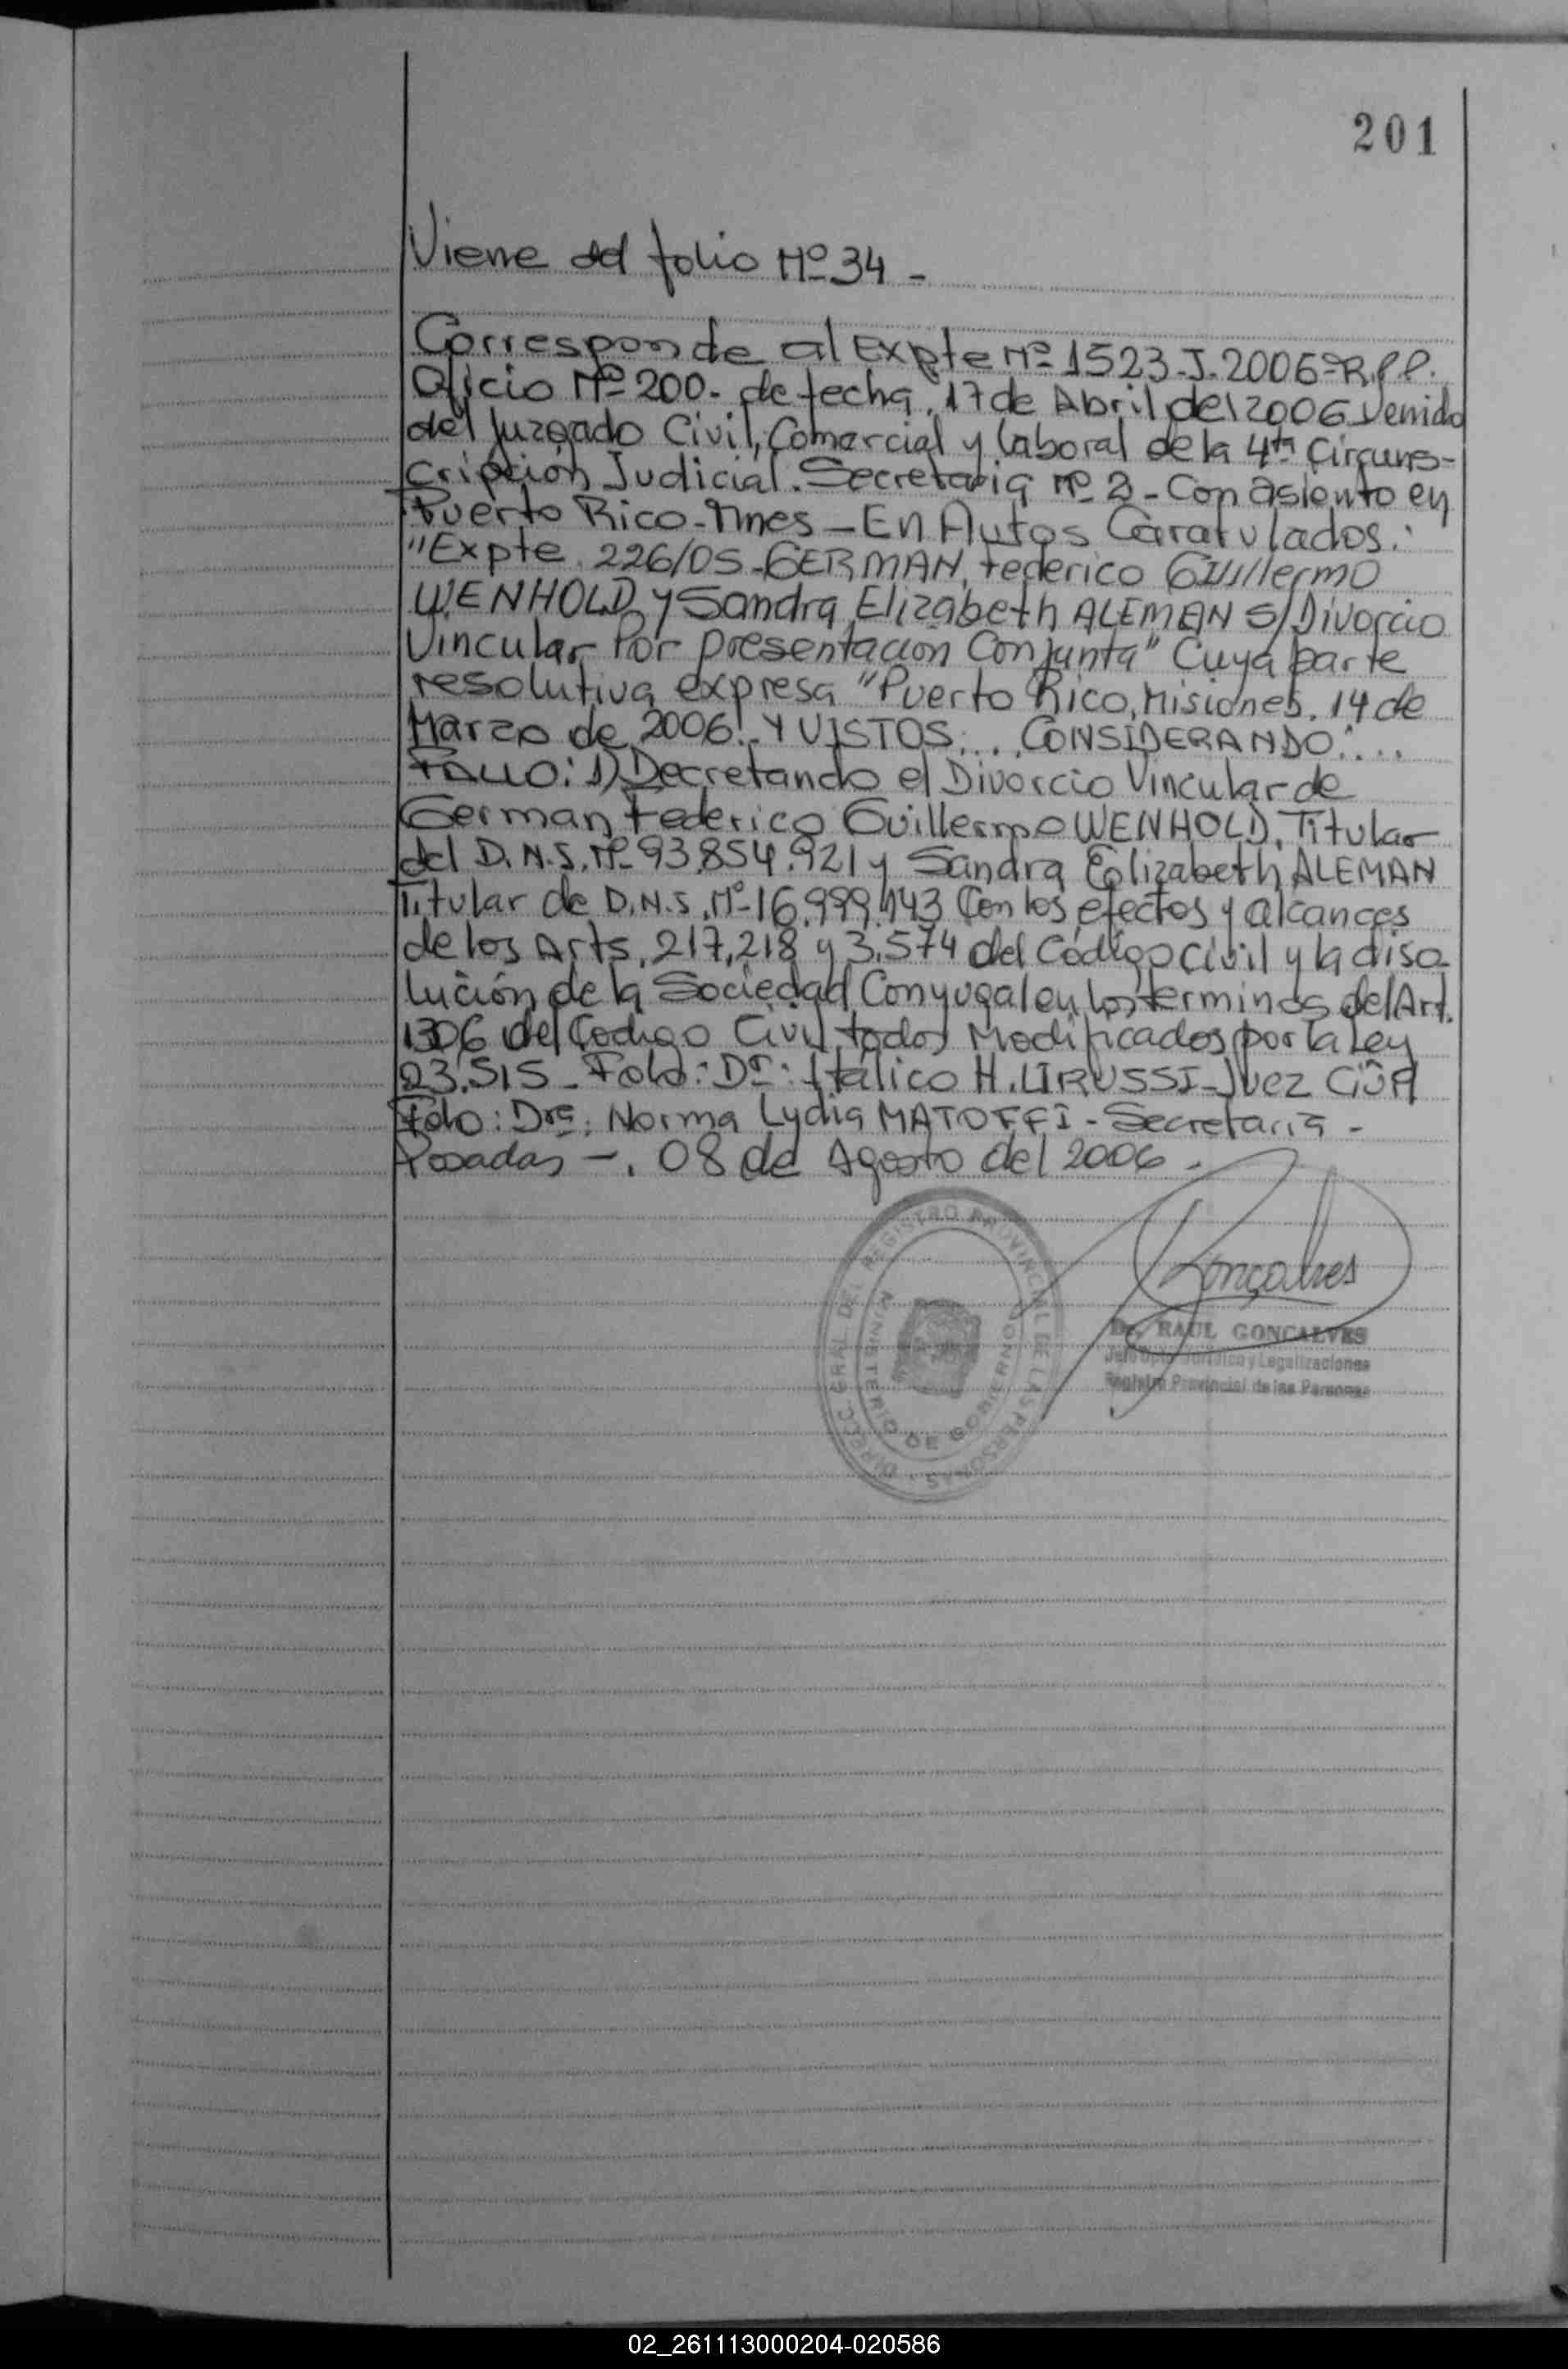 201
Viene del folio Nº 34 -
Corresponde al Expte Nº 1523-J-2006-R.P.P.
Oficio Nº 200- de fecha, 17 de Abril del 2006 venido
del Juzgado Civil, Comercial y Laboral de la 4ta Circuns-
cripción Judicial. Secretaria nº 2 - Con asiento en
Puerto Rico - Mnes - En Autos Caratulados:
"Expte 226/05 - GERMAN, Federico Guillermo
WENHOLD y Sandra Elizabeth ALEMAN S/Divorcio
Vincular Por presentacion Conjunta" Cuya parte
resolutiva expresa "Puerto Rico, Misiones, 14 de
Marzo de 2006. Y VISTOS:... CONSIDERANDO:...
FALLO: 1) Decretando el Divorcio Vincular de
German Federico Guillermo WENHOLD, Titular
del D.N.I. Nº 93.854.921 y Sandra Elizabeth ALEMAN
Titular de D.N.I. Nº 16.999.143 Con los efectos y alcances
de los Arts, 217, 218 y 3.574 del Código Civil y la diso-
lución de la Sociedad Conyugal en los terminos del Art.
1306 del Codigo Civil todos Modificados por la Ley
23.515 - Fdo: Dr: Italico H. LIRUSSI - Juez
Fdo: Dra: Norma Lydia MATOFFI - Secretaria -
Posadas -, 08 de Agosto del 2006.
DIRECC. GRAL. DEL REGISTRO PROVINCIAL DE LAS PERSONAS
MINISTERIO DE GOBIERNO
Gonçalves
Dr. RAUL GONCALVES
Jefe Dpto. Jurídico y Legalizaciones
Registro Provincial de las Personas
02_261113000204-020586